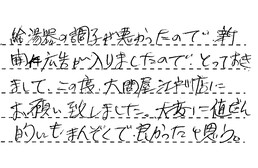 給湯器の調子が悪かったので 新
聞広告が入りましたので とっておき
まして この度、大間屋 店に
お願い致しました。大変に値だん
的いもまんぞくで 良かったと思う。